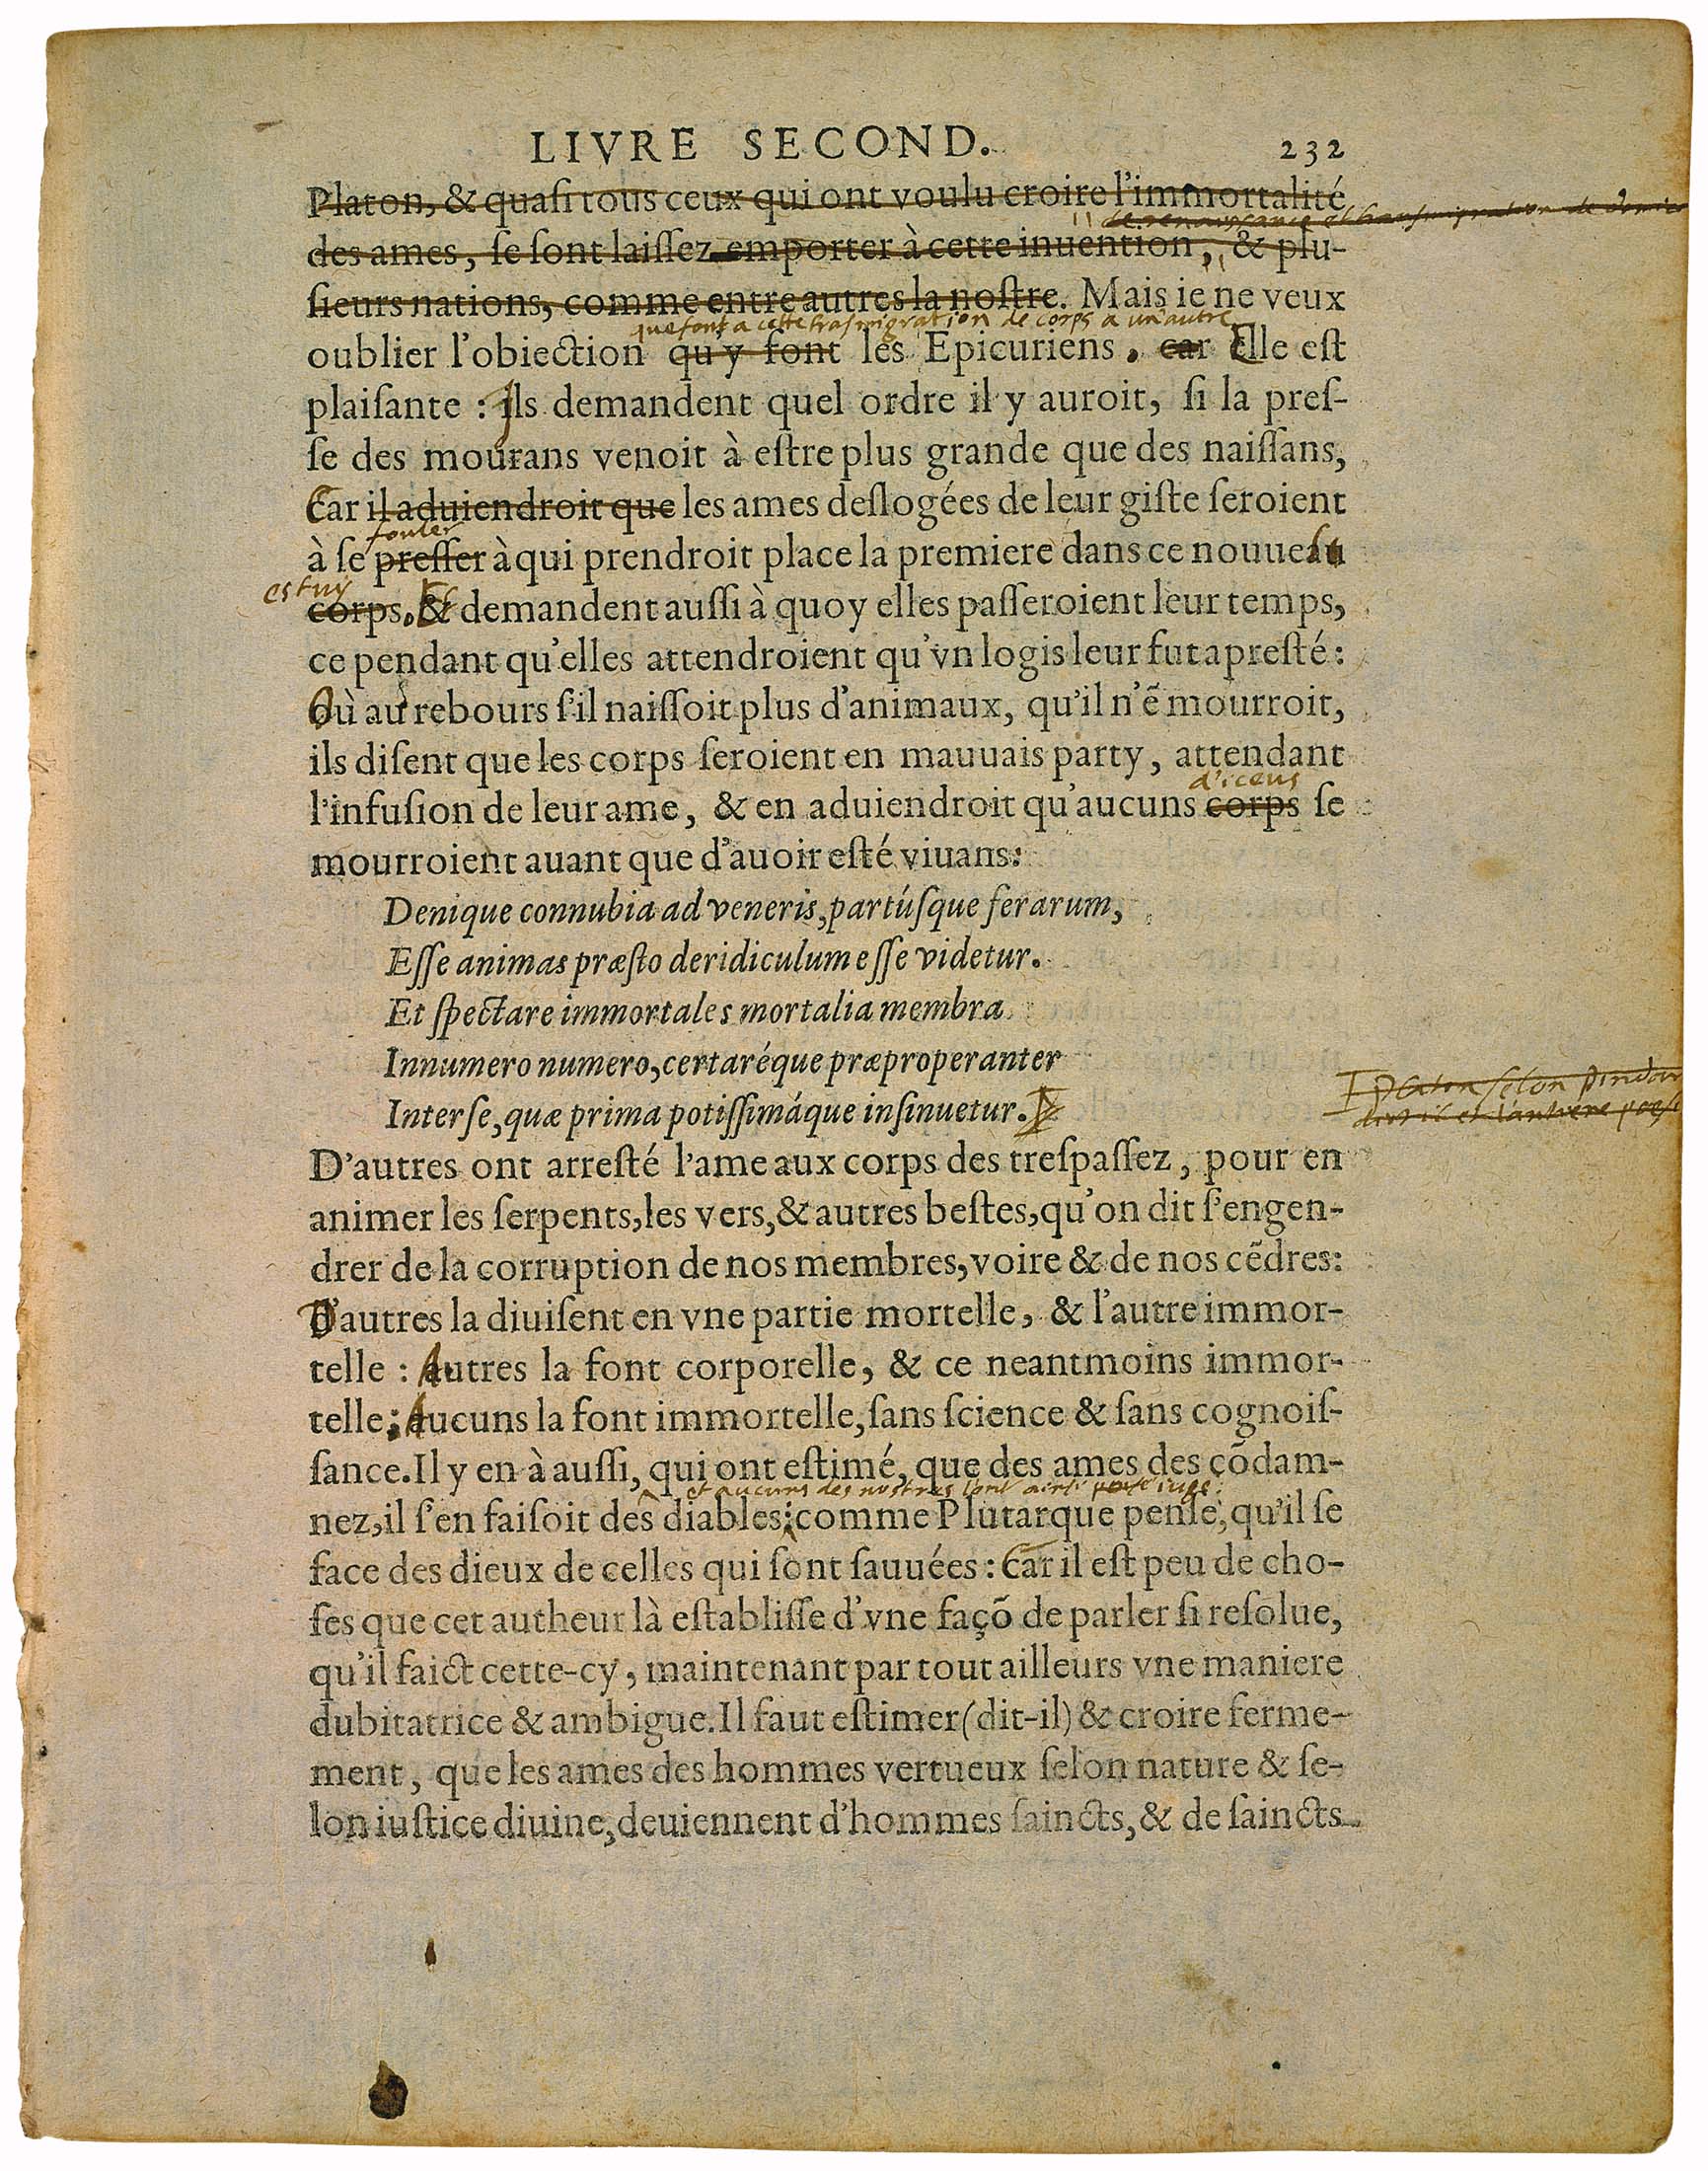 LIVRE SECOND. 232
Platon, & quaſi tous ceux qui ont voulu croire l'immortalité
de renaissance et transmigration de
des ames, ſe ſont laiſſez emporter à cette inuention, & plu-
ſieurs nations, comme entre autres la noſtre. Mais ie ne veux
que font a cette trasmigration de corps a un autre
oublier l'obiection qu'y font les Epicuriens. car Elle eſt
plaiſante : Ils demandent quel ordre il y auroit, ſi la preſ-
ſe des mourans venoit à eſtre plus grande que des naiſſans,
Car il aduiendroit que les ames deſlogées de leur giſte ſeroient
fouler
à ſe preſſer à qui prendroit place la premiere dans ce nouueau
estuy
corps. Et demandent auſſi à quoy elles paſſeroient leur temps,
ce pendant qu'elles attendroient qu'vn logis leur fut apreſté:
Où au rebours s'il naiſſoit plus d'animaux, qu'il n'ẽ mourroit,
ils diſent que les corps ſeroient en mauuais party, attendant
d'iceus
l'infuſion de leur ame, & en aduiendroit qu'aucuns corps ſe
mourroient auant que d'auoir eſté viuans:
Denique connubia ad veneris, partúſque ferarum,
Eſſe animas præſto deridiculum eſſe videtur.
Et ſpectare immortales mortalia membra
Innumero numero, certaréque præproperanter
Inter ſe, quæ prima potiſſimáque inſinuetur.
Platon selon
D'autres ont arreſté l'ame aux corps des treſpaſſez, pour en
animer les ſerpents, les vers, & autres beſtes, qu'on dit s'engen-
drer de la corruption de nos membres, voire & de nos cẽdres:
D'autres la diuiſent en vne partie mortelle, & l'autre immor-
telle : Autres la font corporelle, & ce neantmoins immor-
telle: Aucuns la font immortelle, ſans ſcience & ſans cognoiſ-
ſance. Il y en à auſſi, qui ont eſtimé, que des ames des cõdam-
et aucuns des nostres l'ont ainsi iuge
nez, il s'en faiſoit des diables: comme Plutarque penſe, qu'il ſe
face des dieux de celles qui ſont ſauuées : Car il eſt peu de cho-
ſes que cet autheur là eſtabliſſe d'vne façõ de parler ſi reſolue,
qu'il faict cette-cy, maintenant par tout ailleurs vne maniere
dubitatrice & ambigue. Il faut eſtimer (dit-il) & croire ferme-
ment, que les ames des hommes vertueux ſelon nature & ſe-
lon iuſtice diuine, deuiennent d'hommes ſaincts, & de ſaincts